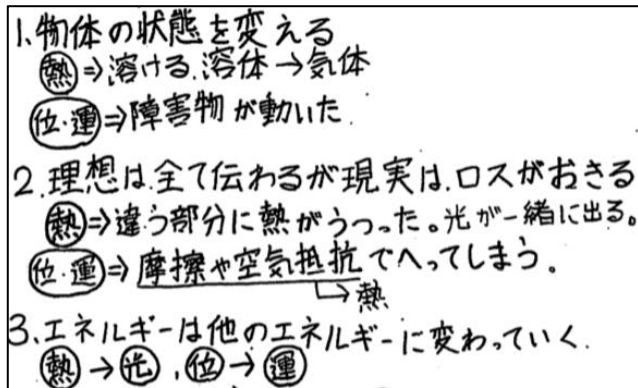 1、物体の状態を変える
熱⇒溶ける、溶体→気体
位・運⇒障害物が動いた
2、理想は、全て伝わるが現実は、ロスがおきる
熱⇒違う部分に熱がうつった。光が一緒に出る。
位・運⇒摩擦や空気抵抗でへってしまう。
→熱
3、エネルギーは他のエネルギーに変わっていく。
熱→光、位→運